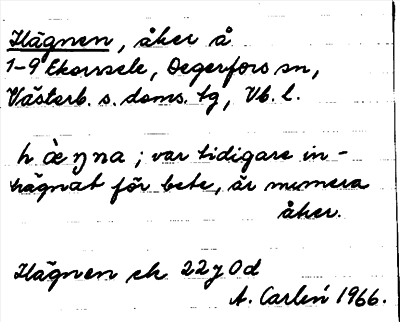 Hägnen, åker å
1-9 Ekorrsele, Degerfors sn,
Västerb. s. doms. tg, Vb. l.
hàŋna; var tidigare in-
hägnat för bete, är numera
åker.
Hägnen ek 22y0d
A. Carlén 1966.